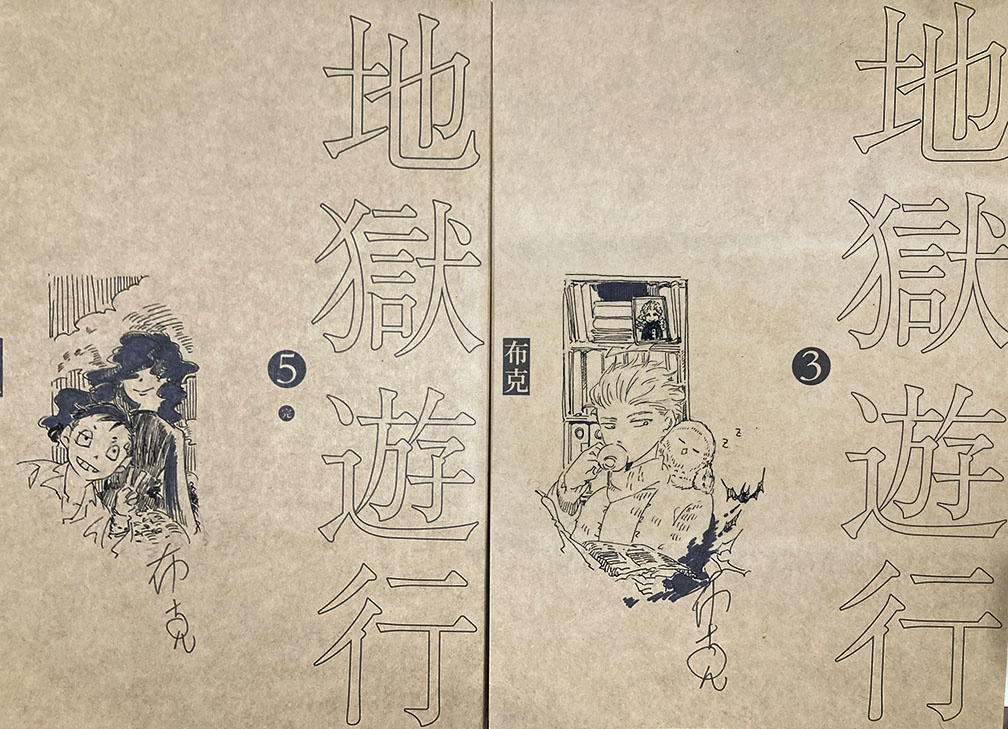 地獄遊行
3
布克
z z
布克
地獄遊行
5
完
布克